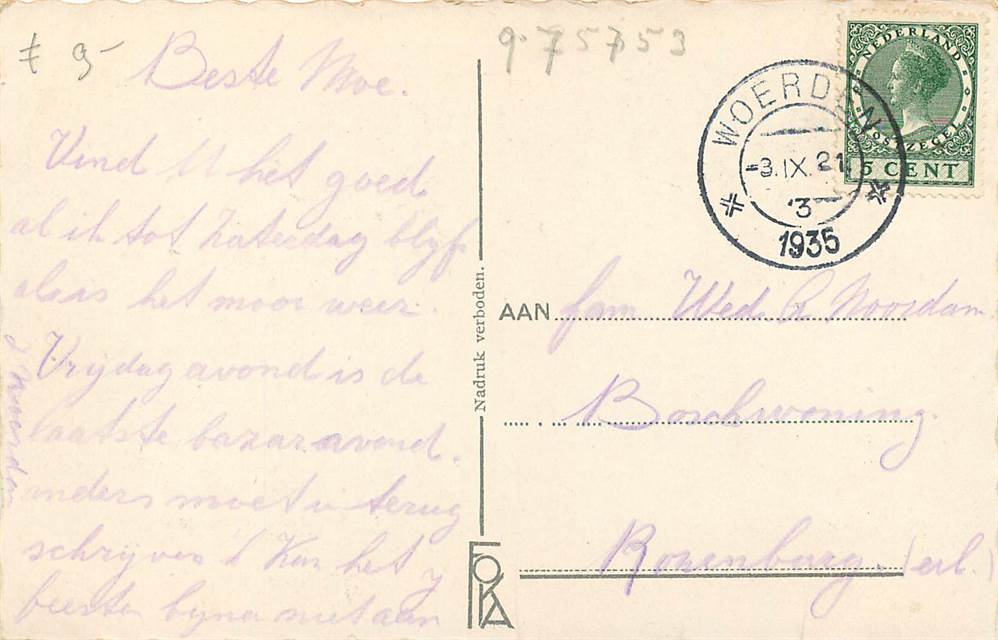 £ 9-
Beste Moe.
Vind U het goed
al ik tot Zaterdag blijf
als het mooi weer.
Vrijdag avond is de
laatste bazar avond.
anders moet u terug
schrijven Kan het
beesten bijna niet aan
J Noordam
9.75753
NEDERLAND
POSTZEGEL
5 CENT
WOERDEN
-3.IX.21
'3
1935
Nadruk verboden.
AAN fam Wed G Noordam
Boschwoning.
Rozenburg.
FOKA